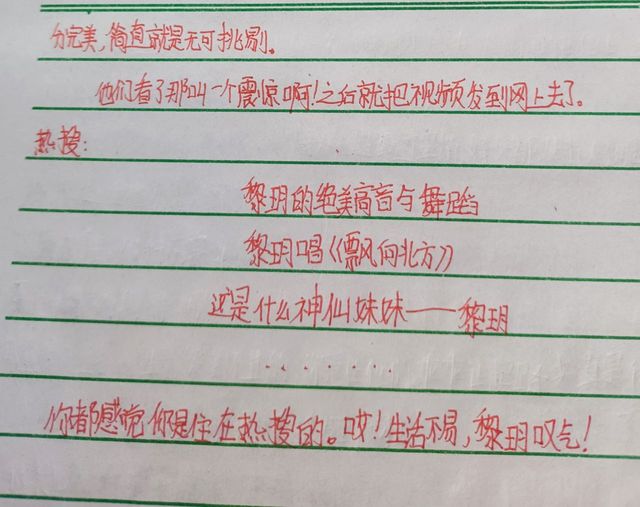 分完美，简直就是无可挑剔。
他们看了那叫一个震惊啊！之后就把视频发到网上去了。
热搜：
黎玥的绝美高音与舞蹈
黎玥唱《飘风向北方》
这是什么神仙妹妹——黎玥
......
你都感觉你是住在热搜的。哎！生活不易，黎玥叹气！